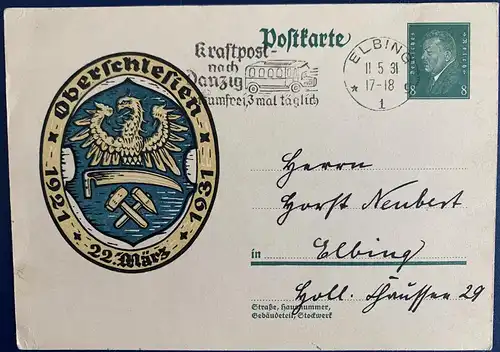 Postkarte
Kraftpost-
nach
Danzig
3 mal täglich
ELBING
11.5.31
17-18
1
Deutsches Reich
8 8
Oberschlesien
1921 1931
22. März
Herrn
Horst Neubert
in Elbing
Holl. Chaussee 29
Straße, Hausnummer,
Gebäudeteil, Stockwerk